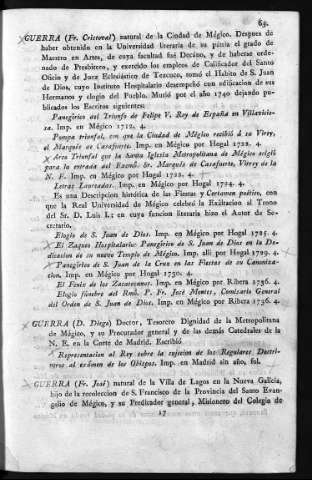 69.
GUERRA (Fr. Cristoval) natural de la Ciudad de Mégico. Despues de
haber obtenido en la Universidad literaria de su patria el grado de
Maestro en Artes, de cuya facultad fué Decano, y de haberse orde-
nado de Presbitero, y exercido los empleos de Calificador del Santo
Oficio y de Juez Eclesiástico de Tezcuco, tomó el Habito de S. Juan
de Dios, cuyo Instituto Hospitalario desempeñó con edificacion de sus
Hermanos y elogio del Pueblo. Murió por el año 1740 dejando pu-
blicados los Escritos siguientes.
Panegirico del Triunfo de Felipe V. Rey de España en Villavicio-
sa. Imp. en Mégico 1712. 4.
Pompa triunfal, con que la Ciudad de Mégico recibió á su Virey,
el Marqués de Casafuerte. Imp. en Mégico por Hogal 1722. 4.
Arco Triunfal que la Santa Iglesia Metropolitana de Mégico erigió
para la entrada del Excmô. Sr. Marqués de Casafuerte, Virey de la
N. E. Imp. en Mégico por Hogal 1722. 4.
Letras Laureadas. Imp. en Mégico por Hogal 1724. 4.
Es una Descripcion histórica de las Fiestas y Certamen poético, con
que la Real Universidad de Mégico celebró la Exâltacion al Trono
del Sr. D. Luis I.: en cuya funcion literaria hizo el Autor de Se-
cretario.
Elogio de S. Juan de Dios. Imp. en Mégico por Hogal 1725. 4.
El Zaguan Hospitalario: Panegirico de S. Juan de Dios en la De-
dicacion de su nuevo Templo de Mégico. Imp. alli por Hogal 1729. 4.
Panegirico de S. Juan de la Cruz en las Fiestas de su Canoniza-
cion. Imp. en Mégico por Hogal 1730. 4.
El Fenix de los Zacatecanos. Imp. en Mégico por Ribera 1736. 4.
Elogio fúnebre del Rmô. P. Fr. José Montes, Comisario General
del Orden de S. Juan de Dios. Imp. en Mégico por Ribera 1736. 4.
GUERRA (D. Diego) Doctor, Tesorero Dignidad de la Metropolitana
de Mégico, y su Procurador general y de las demás Catedrales de la
N. E. en la Corte de Madrid. Escribió
Representacion al Rey sobre la sujecion de los Regulares Doctri-
neros al exâmen de los Obispos. Imp. en Madrid sin año, fol.
GUERRA (Fr. José) natural de la Villa de Lagos en la Nueva Galicia,
hijo de la recoleccion de S. Francisco de la Provincia del Santo Evan-
gelio de Mégico, y su Predicador general, Misionero del Colegio de
17